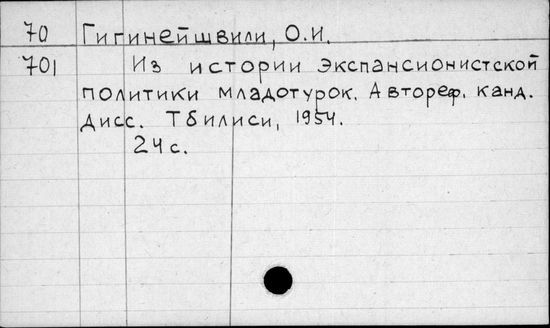 70 Гигинейшвили, О.И.
701 Из истории экспансионистской
политики младотурок. Автореф. канд.
дисс. Тбилиси, 1954.
24 с.